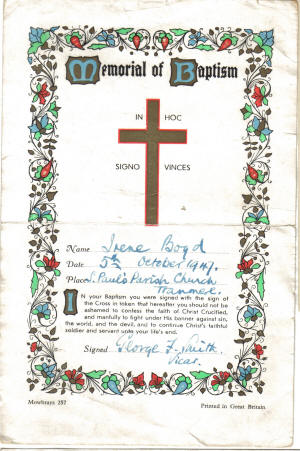 Memorial of Baptism
IN HOC
SIGNO VINCES
Name Irene Boyd
Date 5th October 1947.
Place S. Paul's Parish Church
Tranmere.
IN your Baptism you were signed with the sign of
the Cross in token that hereafter you should not be
ashamed to confess the faith of Christ Crucified,
and manfully to fight under His banner against sin,
the world, and the devil, and to continue Christ's faithful
soldier and servant unto your life's end.
Signed George F. Smith.
Vicar.
Mowbrays 257 Printed in Great Britain